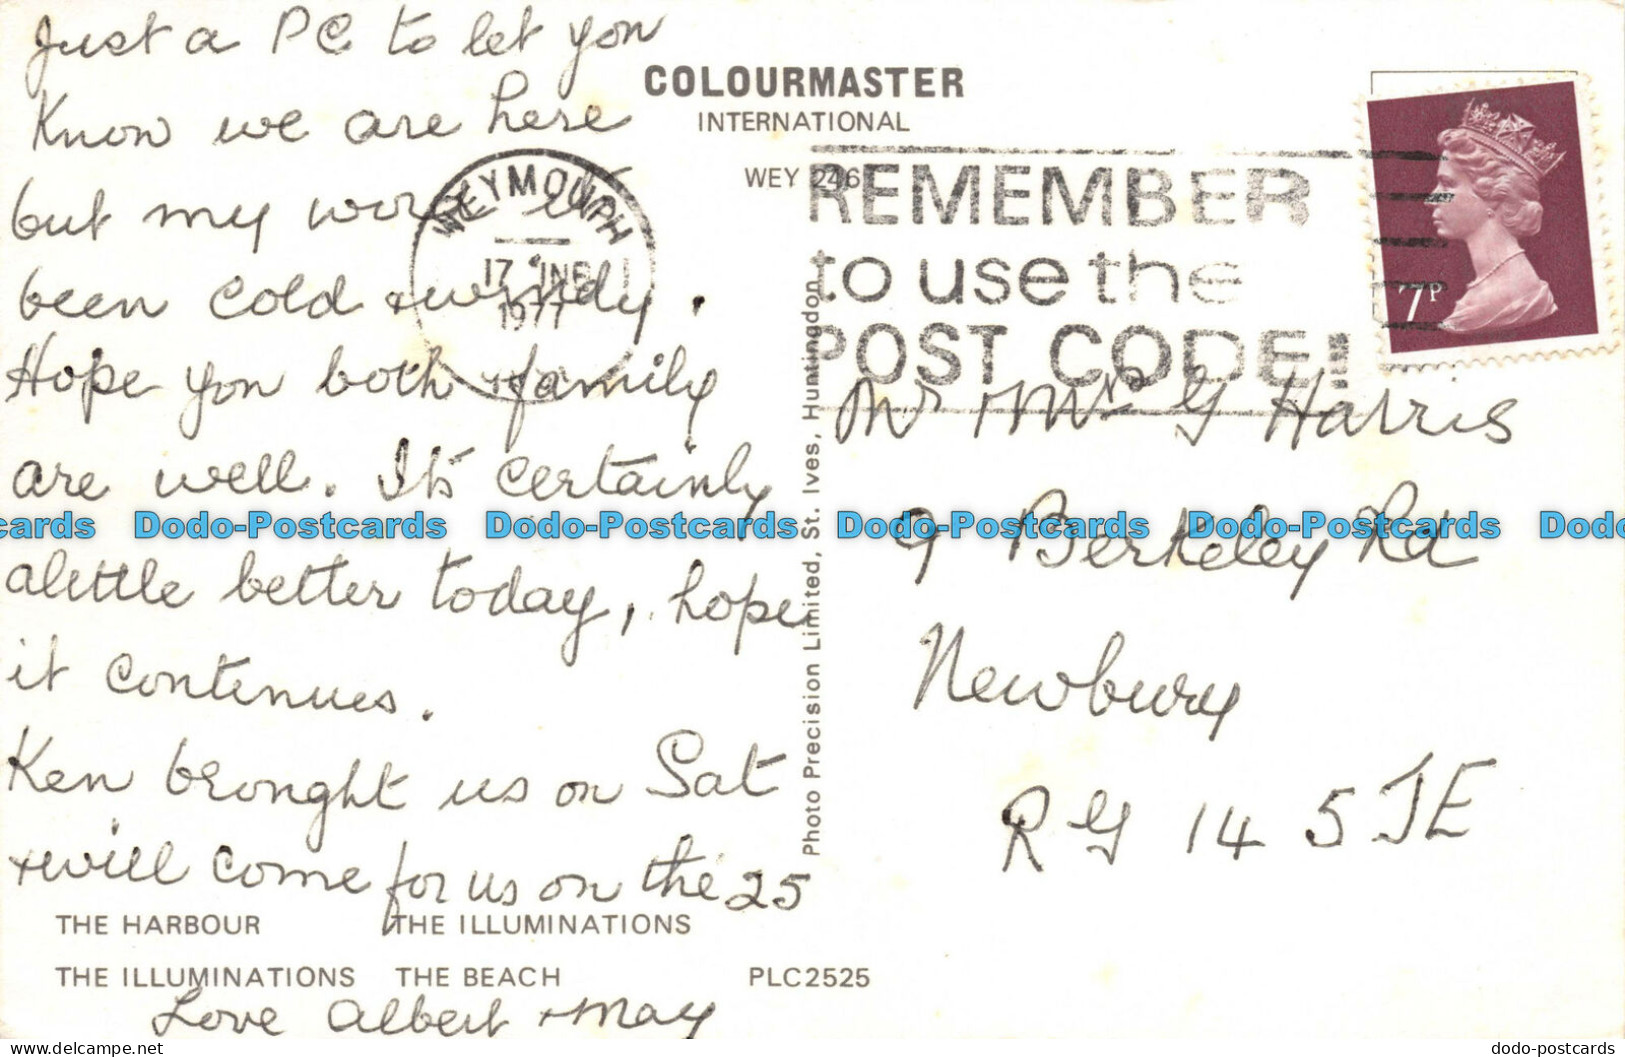 Just a PC to let you
Know we are here
but my word it
been cold & windy.
Hope you both & family
are well. It's certainly
a little better today, hope
it continues.
Ken brought us on Sat
& will come for us on the 25
Love Albert & May
THE HARBOUR THE ILLUMINATIONS
THE ILLUMINATIONS THE BEACH PLC2525
COLOURMASTER
INTERNATIONAL
WEY 246
Photo Precision Limited, St. Ives, Huntingdon
WEYMOUTH
17 JNE
1977
REMEMBER
to use the
POST CODE!
7P
Mr & Mrs G Harris
9 Berkeley Rd
Newbury
RG 14 5JE
Dodo-Postcards Dodo-Postcards Dodo-Postcards
dodo-postcards.com
The World of Postcards